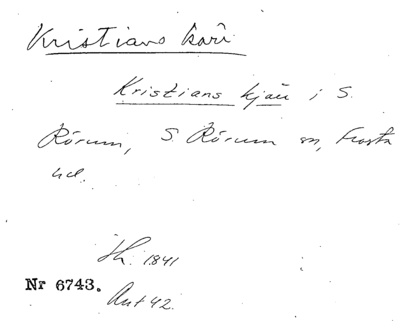 Kristians kärr
Kristians kjär i S.
Rörum, S. Rörum sn, Frosta
hd.
Sk. 1841
Nr 6743.
Ant 42.